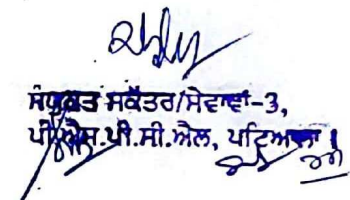 ਸੰਯੁਕਤ ਸਕੱਤਰ/ਸੇਵਾਵਾਂ-3,
ਪੀ.ਐਸ.ਪੀ.ਸੀ.ਐਲ, ਪਟਿਆਲਾ